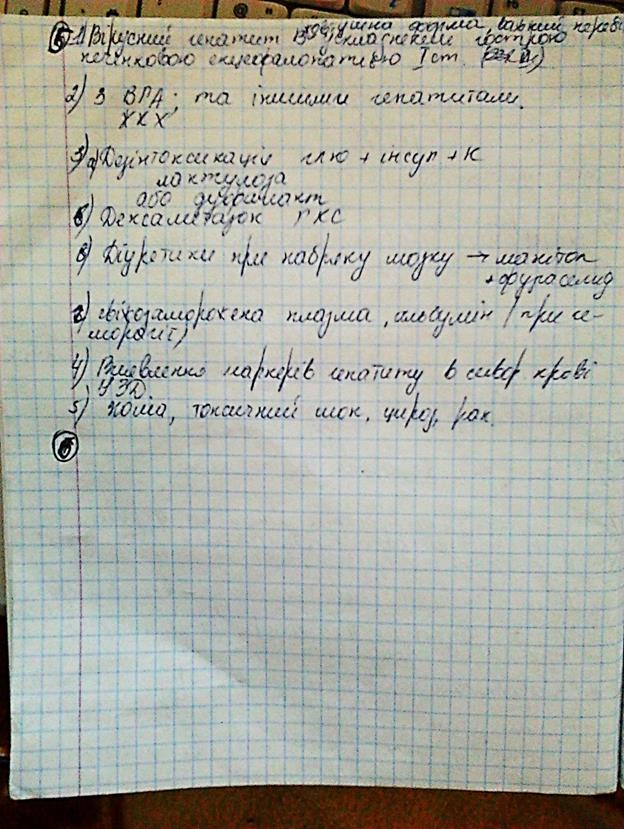 жовтушна форма, важкий перебі
⑤ 1) Вірусний гепатит В, ускладнений гострою
печінковою енцефалопатією I ст.
2) З ВГА; та іншими гепатитами.
ЖКХ
3) а) Дезінтоксикація глю + інсул + К
лактулоза
або дуфалакт
б) Дексаметазон ГКС
в) Діуретики при набряку мозку → манітол
+ фуросемід
г) свіжозаморожена плазма, альбумін (при ге-
морагії)
4) Виявлення маркерів гепатиту в сивор крові
УЗД
5) Кома, токсичний шок, цироз, рак.
⑥